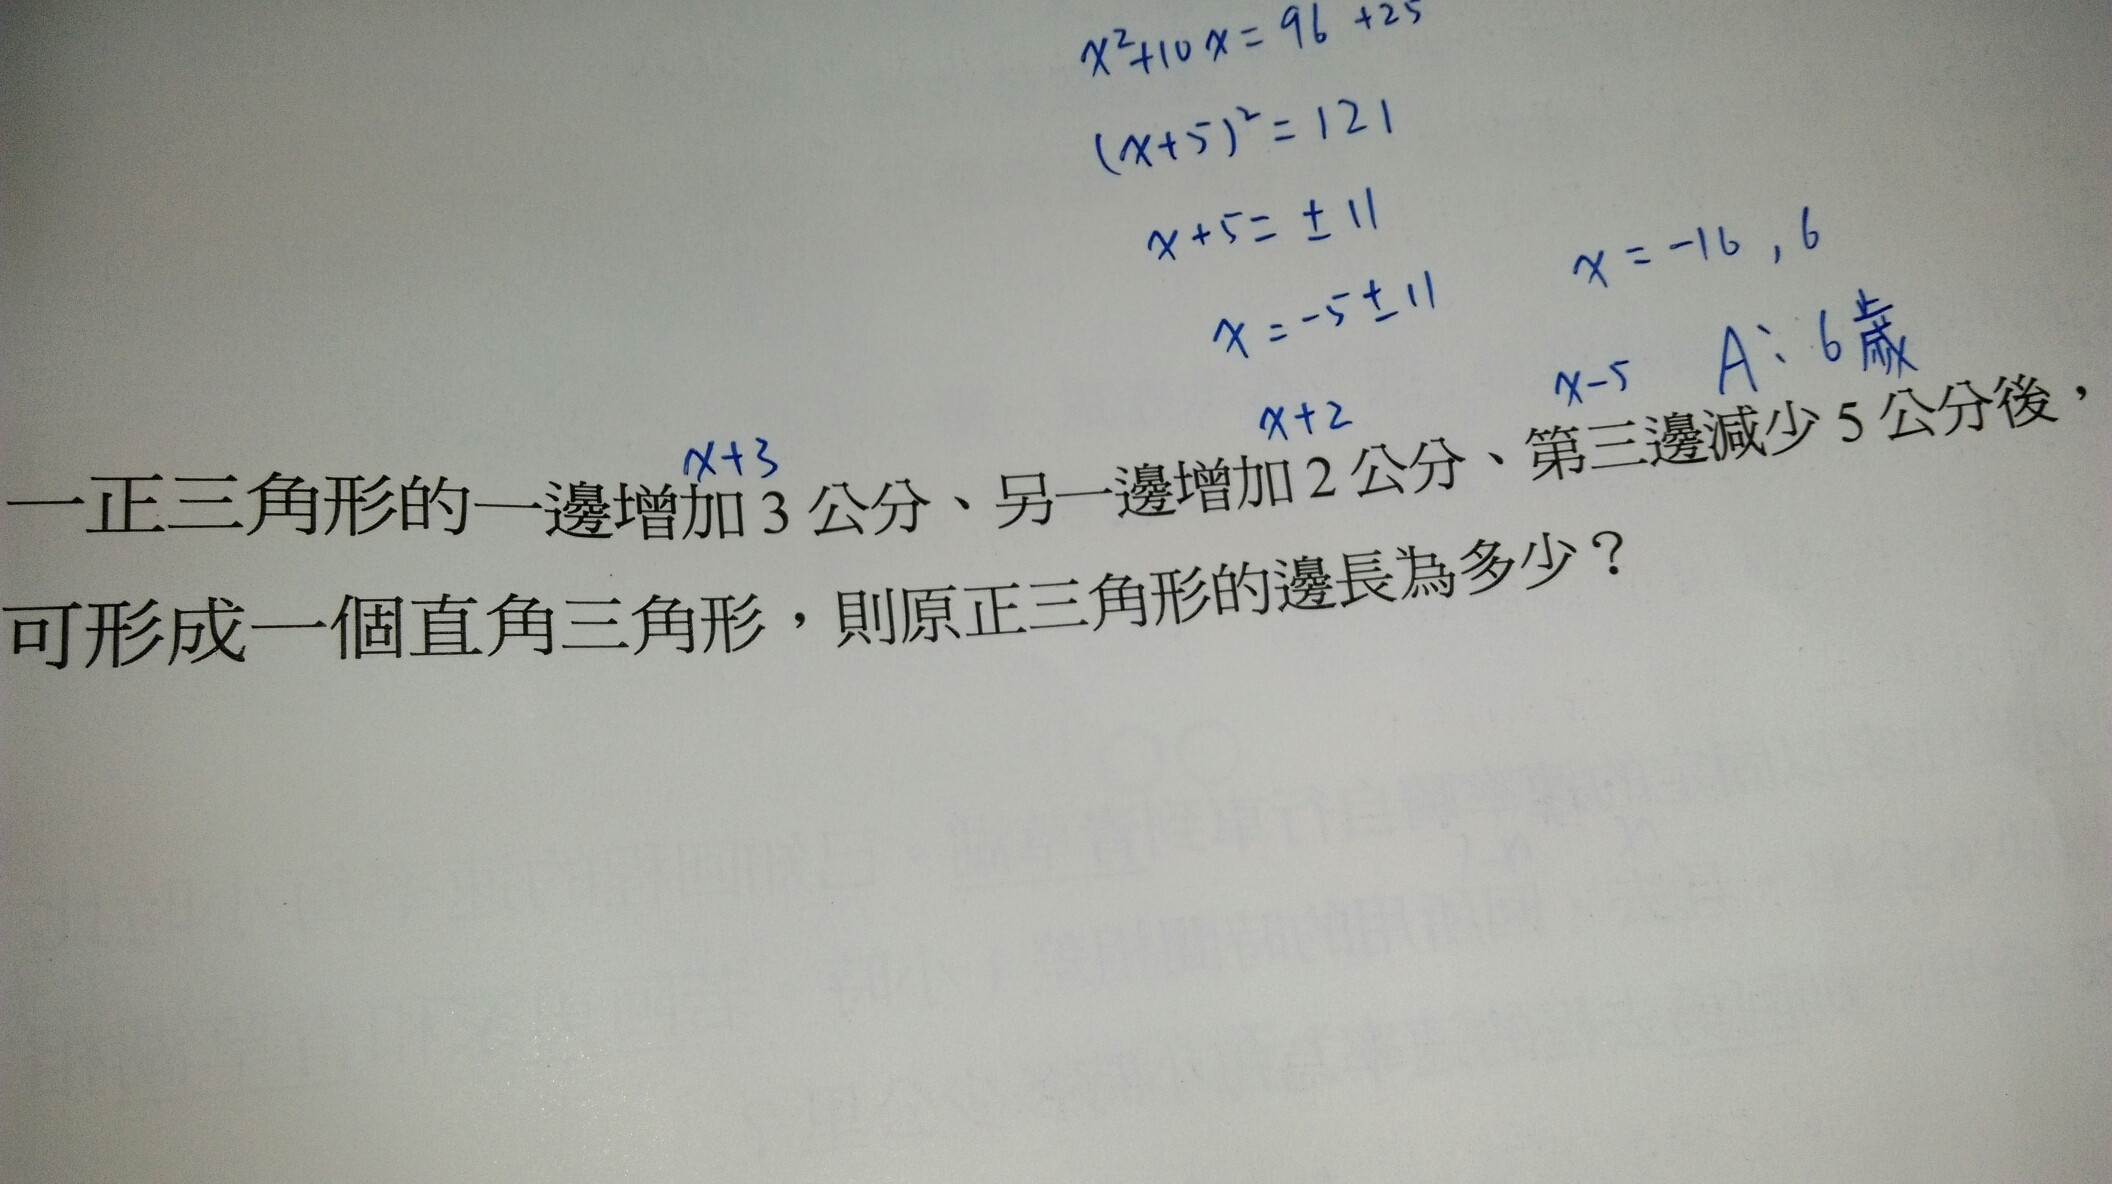 x²+10x=96 +25
(x+5)²=121
x+5=±11
x=-5±11 x=-16,6
A:6歲
x+3 x+2 x-5
一正三角形的一邊增加3公分、另一邊增加2公分、第三邊減少5公分後，
可形成一個直角三角形，則原正三角形的邊長為多少？